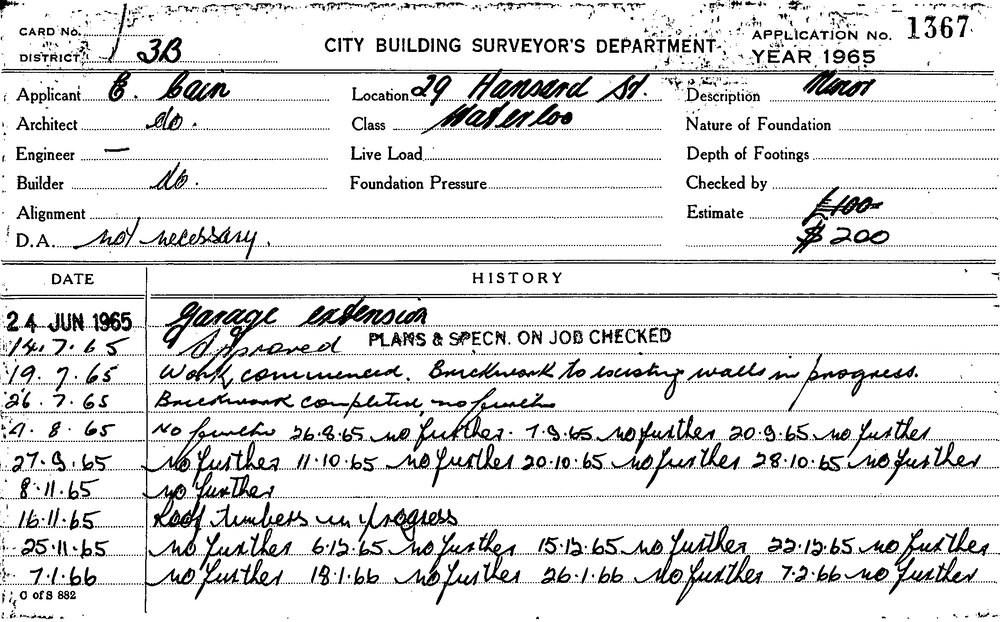 CARD No.
DISTRICT 3B
CITY BUILDING SURVEYOR'S DEPARTMENT
APPLICATION No. 1367
YEAR 1965
Applicant E. Cain
Location 29 Hansard St.
Description Minor
Architect do.
Class Waterloo
Nature of Foundation
Engineer —
Live Load
Depth of Footings
Builder do.
Foundation Pressure
Checked by
Alignment
Estimate £100-
D.A. not necessary.
$200
DATE HISTORY
24 JUN 1965 Garage extension
14.7.65 Approved PLANS & SPECN. ON JOB CHECKED
19.7.65 Work commenced. Brickwork to existing walls in progress.
26.7.65 Brickwork completed, no further
9.8.65 No further 26.8.65 no further. 7.9.65 no further 20.9.65 no further
27.9.65 no further 11.10.65 no further 20.10.65 no further 28.10.65 no further
8.11.65 no further
16.11.65 Roof timbers in progress
25.11.65 no further 6.12.65 no further 15.12.65 no further 22.12.65 no further
7.1.66 no further 18.1.66 no further 26.1.66 no further 7.2.66 no further
C of S 882